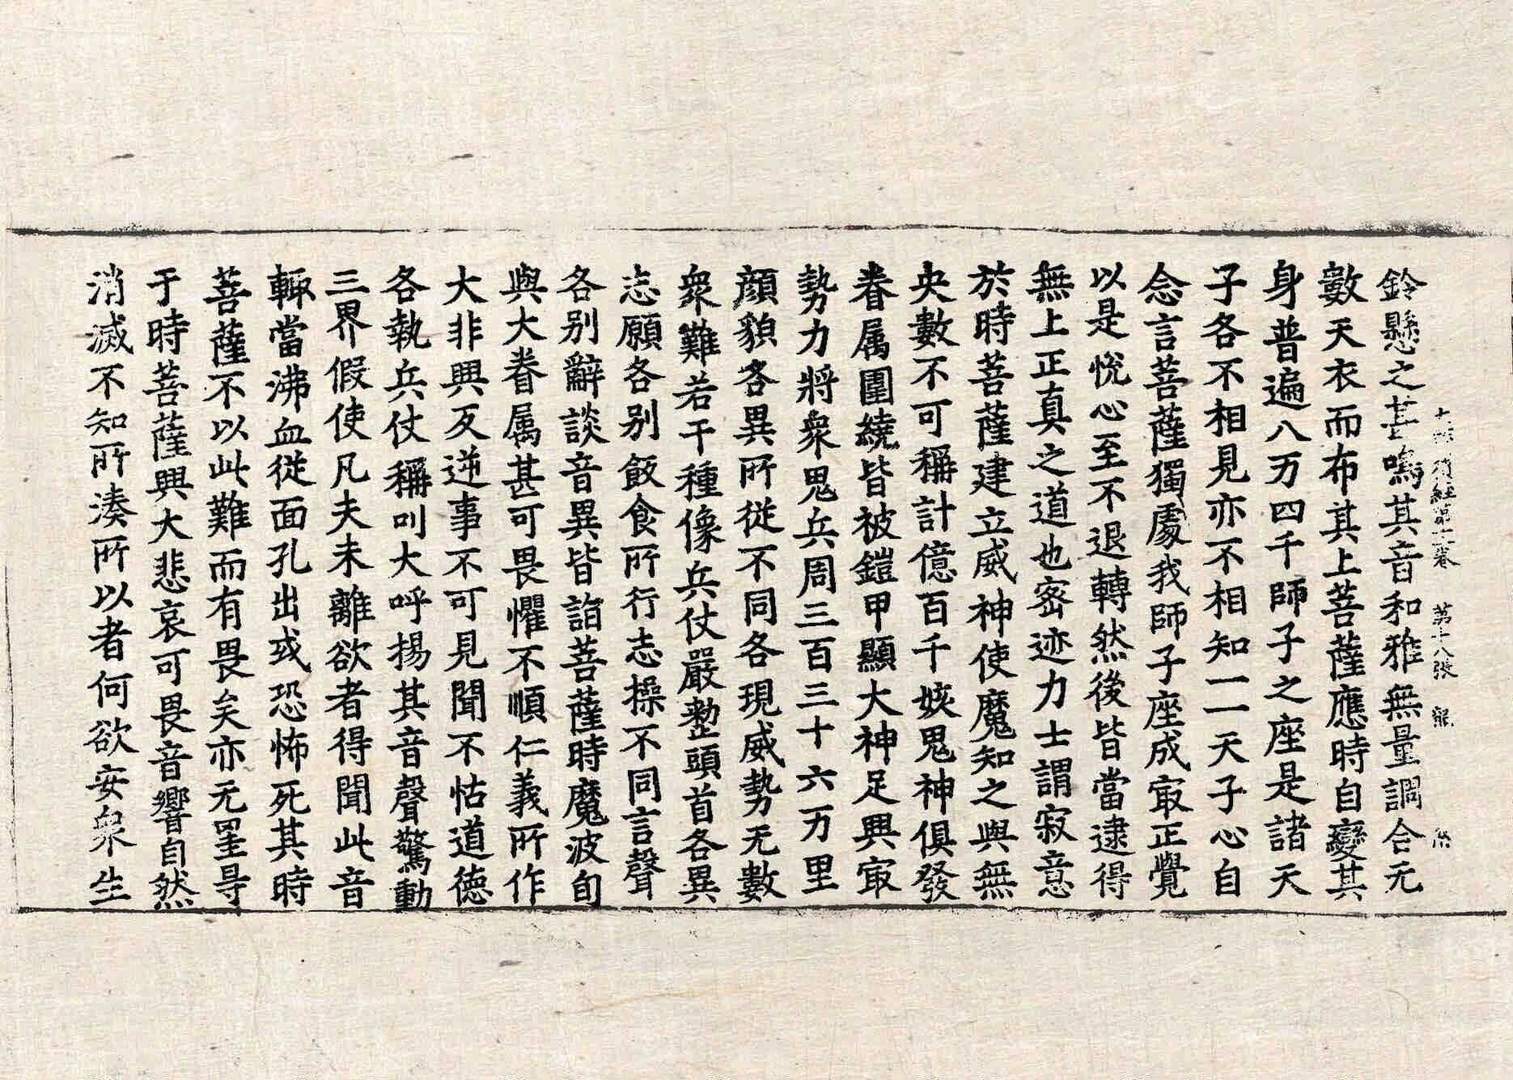 鈴懸之甚鳴其音和雅無量調合无
數天衣而布其上菩薩應時自變其
身普遍八万四千師子之座是諸天
子各不相見亦不相知一一天子心自
念言菩薩獨處我師子座成㝡正覺
以是恱心至不退轉然後皆當逮得
無上正真之道也密迹力士謂寂意
於時菩薩建立威神使魔知之與無
央數不可稱計億百千姟鬼神俱發
眷属圍繞皆被鎧甲顯大神足興㝡
勢力將衆鬼兵周三百三十六万里
顔貌各異所從不同各現威勢无數
衆難若干種像兵仗嚴整頭首各異
志願各别飯食所行志操不同言聲
各别辭談音異皆詣菩薩時魔波旬
與大眷属甚可畏懼不順仁義所作
大非興反逆事不可見聞不怙道德
各執兵仗稱叫大呼揚其音聲驚動
三界假使凡夫未離欲者得聞此音
輙當沸血從面孔出或恐怖死其時
菩薩不以此難而有畏矣亦无罣㝵
于時菩薩興大悲哀可畏音響自然
消滅不知所湊所以者何欲安衆生
經第十卷 第十八張 龍